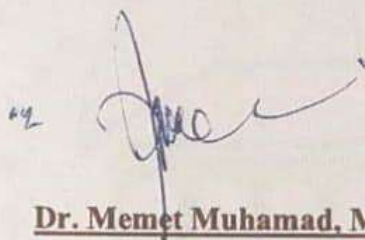 Dr. Memet Muhamad, M